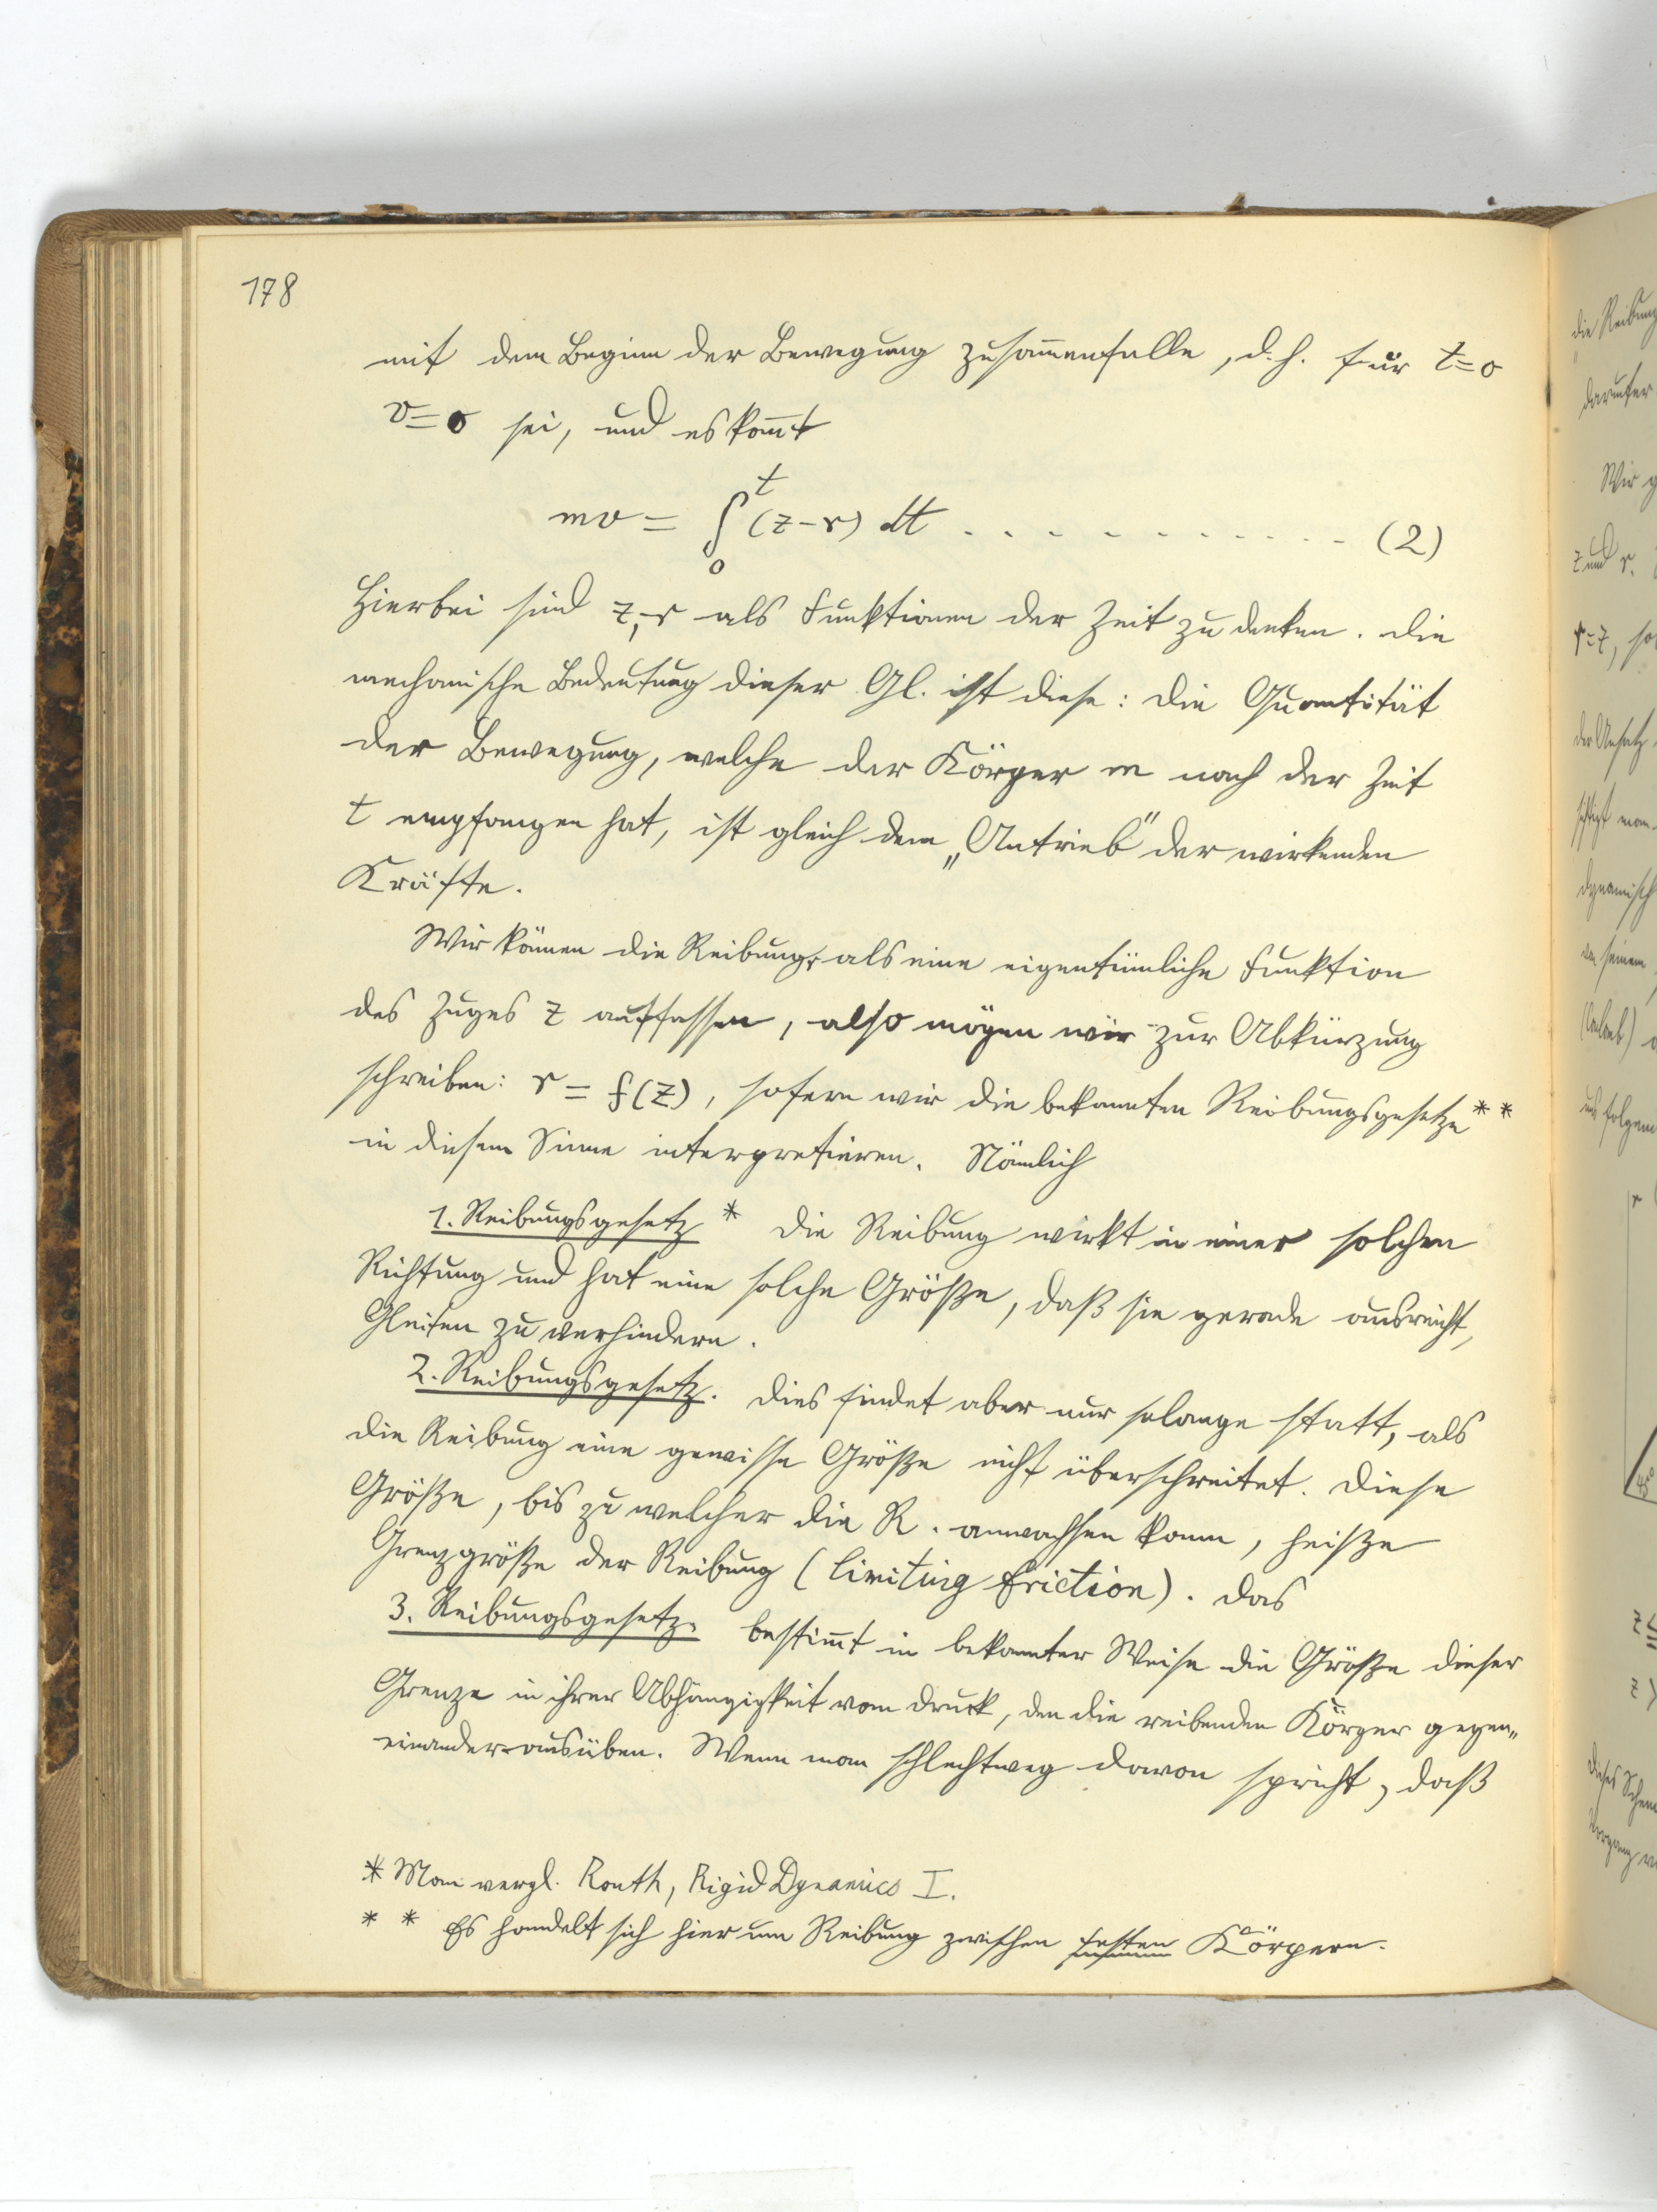 178
mit dem Beginn der Bewegung zusam̄enfalle, d. h. für t=0
v=0 sei, und es kom̄t
mv = ∫₀ᵗ (z-r) dt . . . . . . . . . . . . (2)
Hierbei sind z, r als Funktionen der Zeit zu denken. Die
mechanische Bedeutung dieser Gl. ist diese: Die Quantität
der Bewegung, welche der Körper m nach der Zeit
t empfangen hat, ist gleich dem „Antrieb" der wirkenden
Kräfte.
Wir können die Reibung r als eine eigentümliche Funktion
des Zuges z auffassen, also mögen wir zur Abkürzung
schreiben: r = f(z), sofern wir die bekannten Reibungsgesetze * *
in diesem Sinne interpretieren. Nämlich
1. Reibungsgesetz * Die Reibung wirkt in einer solchen
Richtung und hat eine solche Größe, daß sie gerade ausreicht,
Gleiten zu verhindern.
2. Reibungsgesetz. Dies findet aber nur solange statt, als
die Reibung eine gewisse Größe nicht überschreitet. Diese
Größe, bis zu welcher die R. anwachsen kann, heisze
Grenzgröße der Reibung (limiting friction). Das
3. Reibungsgesetz. bestim̄t in bekannter Weise die Größe dieser
Grenze in ihrer Abhängigkeit vom Druck, den die reibenden Körper gegen„
einander ausüben. Wenn man schlechtweg davon spricht, daß
* Man vergl. Routh, Rigid Dynamics I.
* * Es handelt sich hier um Reibung zwischen festen Körpern.
die Reibung
darunter
Wir
z und r.
r=z, so
der Ansatz
man
dynamisch
seinem
uns folgen
r
45°
z ≦
z >
dieses Schem
Vorgang